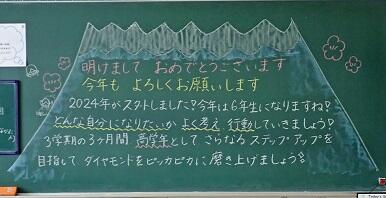 明けまして おめでとうございます
今年も よろしくお願いします
2024年がスタートしました?今年は6年生になりますね?
どんな自分になりたいか よく考え 行動していきましょう?
3学期の3ヶ月間 高学年として さらなる ステップアップを
目指して ダイヤモンドをピッカピカに 磨き上げましょう。